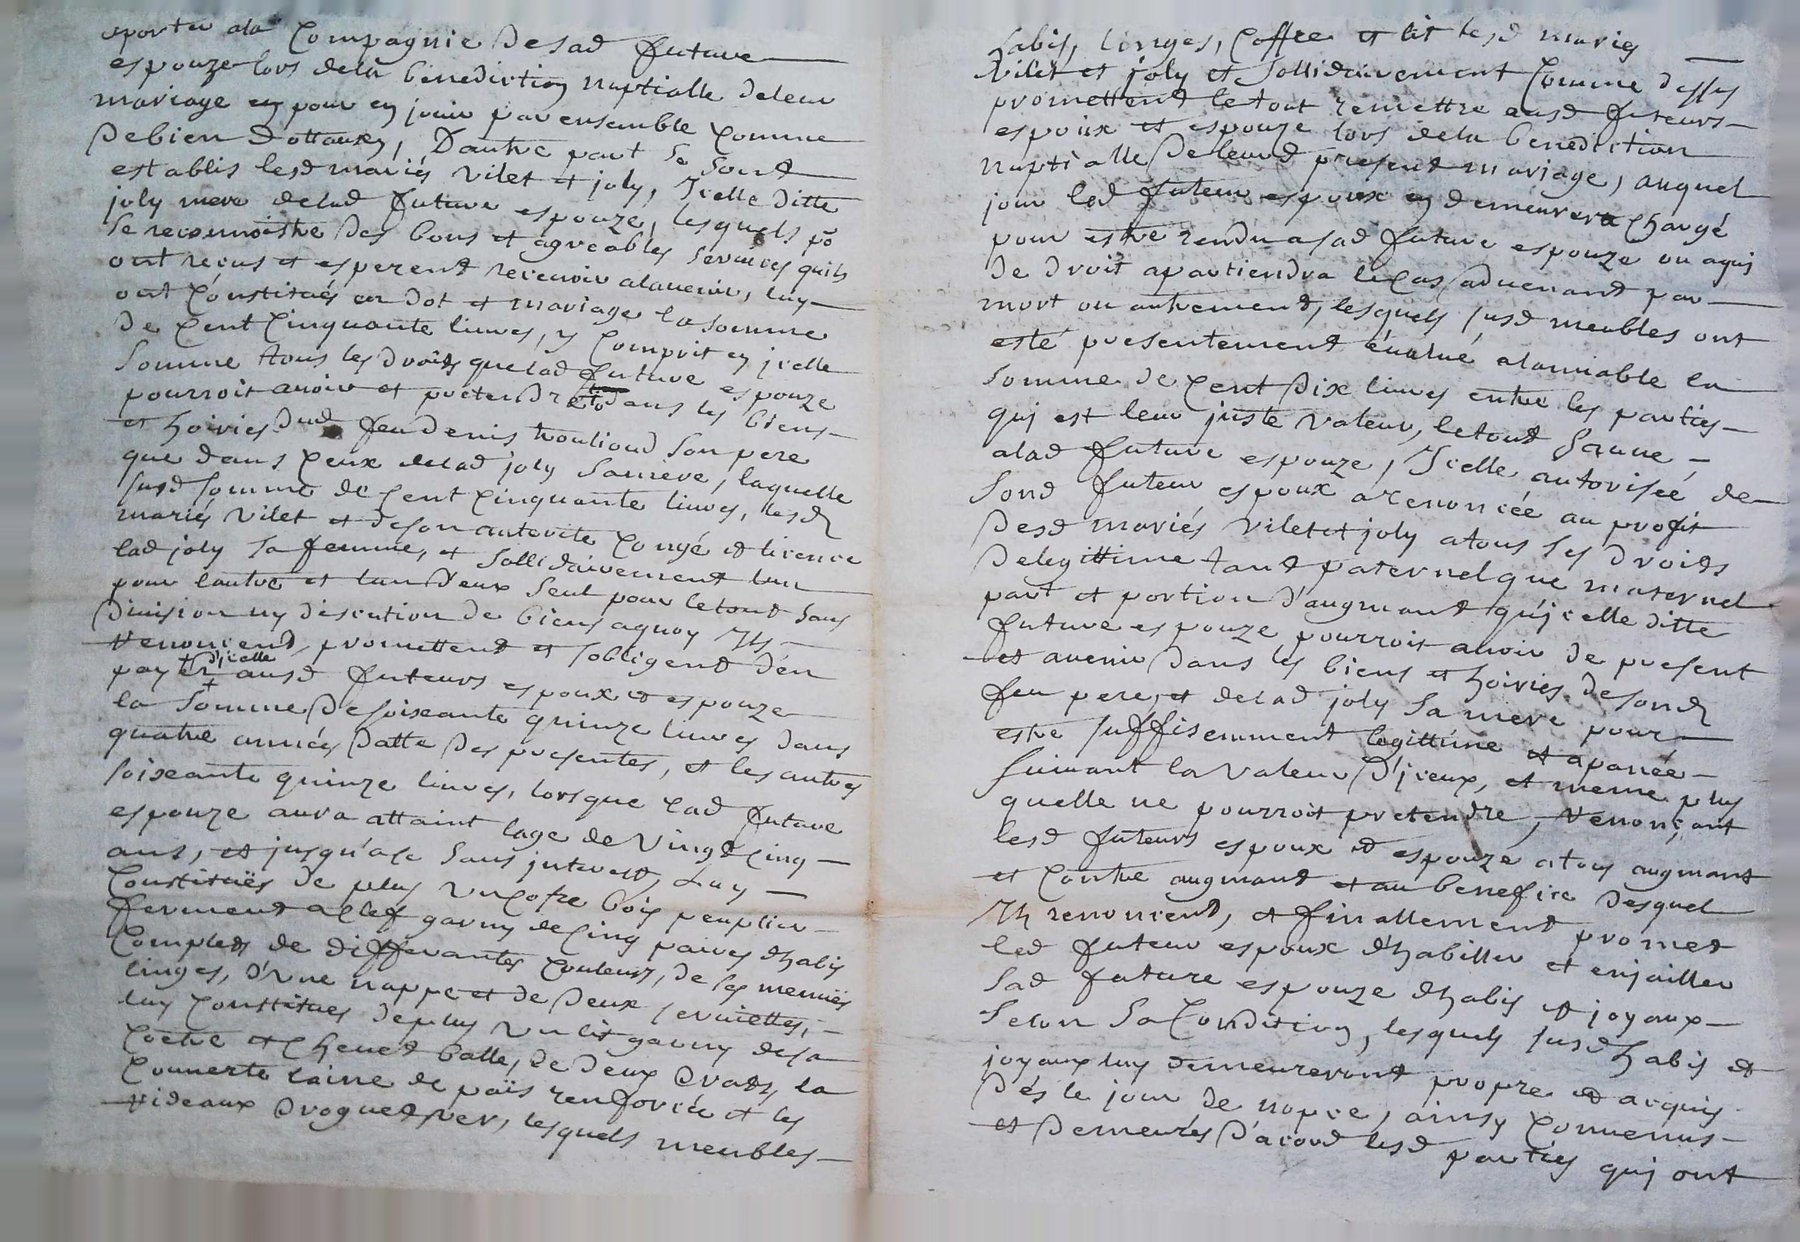 aporter ala Compagnie desad future
espouze lors dela benediction nuptialle deleur
mariage en pour en jouir par ensemble Comme
de bien dottaux, Dautre part se sont
establis lesd mariés vilet et joly, Icelle ditte
joly mere delad future espouze, lesquels po
se reconnoistre des bons et agreables services quils
ont recus et esperent recevoir alavenir, luy
ont Constitués en dot et mariage la somme
de Cent Cinquante livres, y Compris en jcelle
somme tous les droits quelad future espouze
pourroit avoir et pretendre dans les biens
et hoiries dud feu denis troulioud son pere
que dans Ceux delad joly sa mere, laquelle
susd somme de Cent Cinquante livres, lesd
mariés vilet et deson autorite Congé et licence
lad joly sa femme, et sollidairement lun
pour lautre et lun deux seul pour letout sans
division ny discution de biens aquoy Ils
renoncent, promettent et sobligent den
payer d'jcelle ausd futeurs espoux et espouze
la somme de soixante quinze livres dans
quatre années datte des presentes, et les autres
soixante quinze livres, lorsque lad future
espouze aura attaint lage de vingt Cinq
ans, et jusqu'ace sans interest, Luy
Constitués de plus un Cofre bois peuplier
ferment aclef garny de Cinq paires dhabis
Complets de differantes Couleurs, de ses menües
linges, d'une nappe et de deux serviettes,
luy Constitues deplus un lit garny desa
Coëtre et Chevet balle, de deux draps, la
Couverte laine de païs renforcée et les
rideaux droguet ver, lesquels meubles
habis, linges, Coffre et lit lesd mariés
vilet et joly et sollidairement Comme dessus
promettent letout remettre ausd futeurs
espoux et espouze lors dela benediction
nuptialle deleurd present mariage, auquel
jour led futeur espoux en demeurera Chargé
pour estre rendu asad future espouze ou aquj
de droit apartiendra le Cas advenant par
mort ou autrement, lesquels susd meubles ont
esté presentement évalué alamiable la
somme de Cent dix livres entre les parties
quj est leur juste valeur, letout
alad future espouze, Icelle autorisée de
sond futeur espoux a renoncée au profit
desd mariés vilet et joly atous ses droits
delegittime tant paternel que maternel
part et portion d'augmant qu'jcelle ditte
future espouze pourroit avoir de present
et avenir dans les biens et hoiries desond
feu pere, et delad joly sa mere pour
estre suffisemment legittime et apanée
suivant la valeur d'jceux, et meme plus
quelle ne pourroit pretendre, renonçant
lesd futeurs espoux et espouze atous augmant
et Contre augmant et au benefice desquel
Ils renoncent, et finallement promet
led futeur espoux d'habiller et enjailler
sad future espouze dhabis et joyaux
selon sa Condition, lesquels susd habis et
joyaux luy demeureront propre et acquis
dés le jour de nopce, ainsy Convenus
et demeurés d'acord lesd parties quj ont